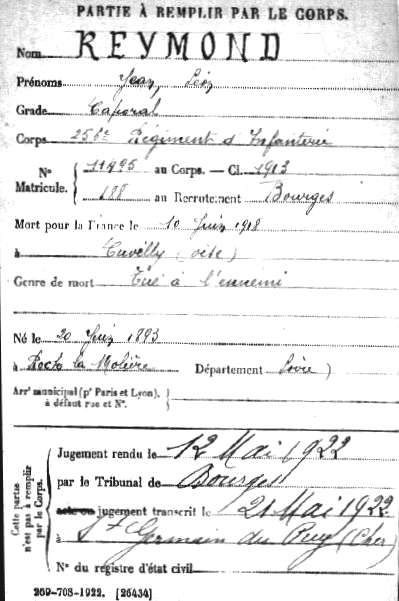 PARTIE À REMPLIR PAR LE CORPS.
Nom REYMOND
Prénoms Jean, Léon
Grade Caporal
Corps 256e Régiment d'Infanterie
No Matricule. 11495 au Corps. — Cl. 1913
188 au Recrutement Bourges
Mort pour la France le 10 Juin 1918
à Cuvilly (oise)
Genre de mort Tué à l'ennemi
Né le 20 Juin 1893
à la Molière Département Loire)
Arrt municipal (pr Paris et Lyon).
à défaut rue et No.
Cette partie n'est pas à remplir par le Corps.
Jugement rendu le 12 Mai 1922
par le Tribunal de Bourges
acte ou jugement transcrit le 21 Mai 1922
à St Germain du Puy (Cher)
No du registre d'état civil
269-708-1922. [26434]